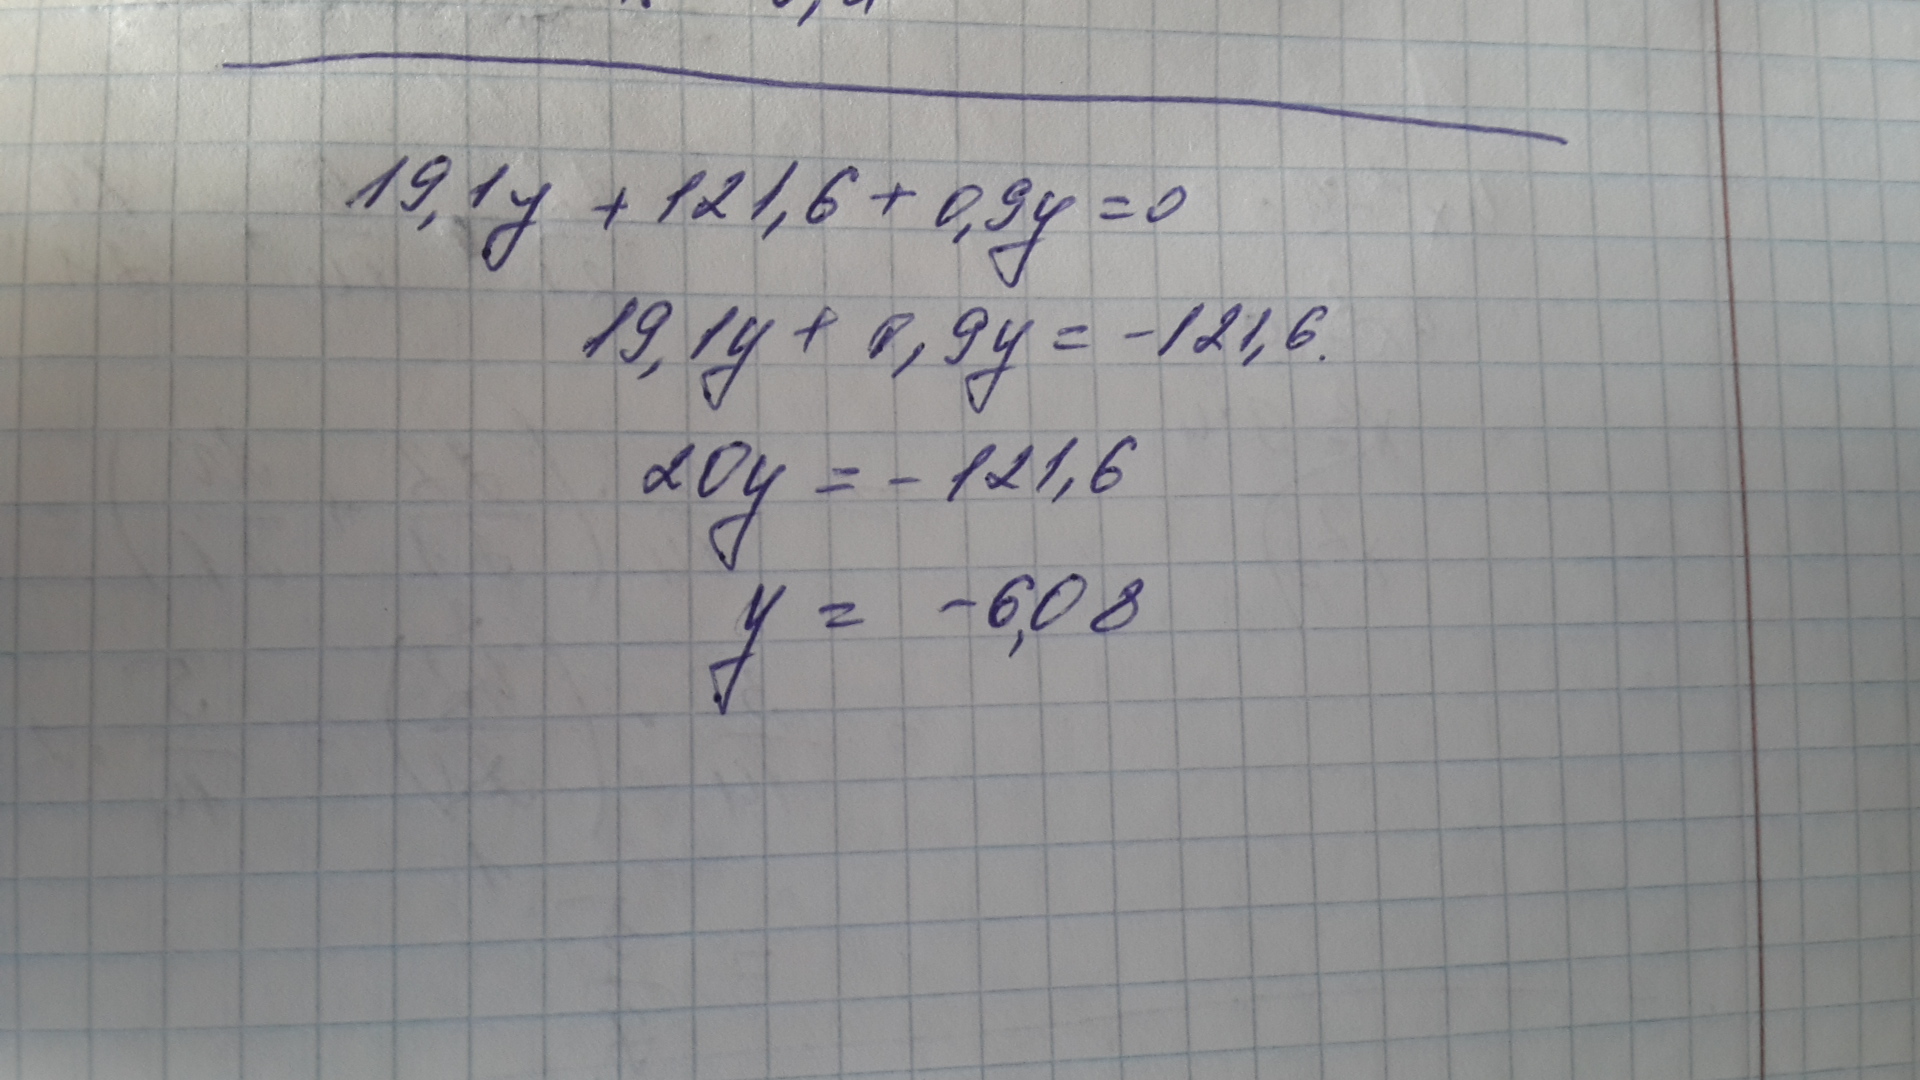 19,1y + 121,6 + 0,9y = 0
19,1y + 0,9y = -121,6.
20y = - 121,6
y = -6,08